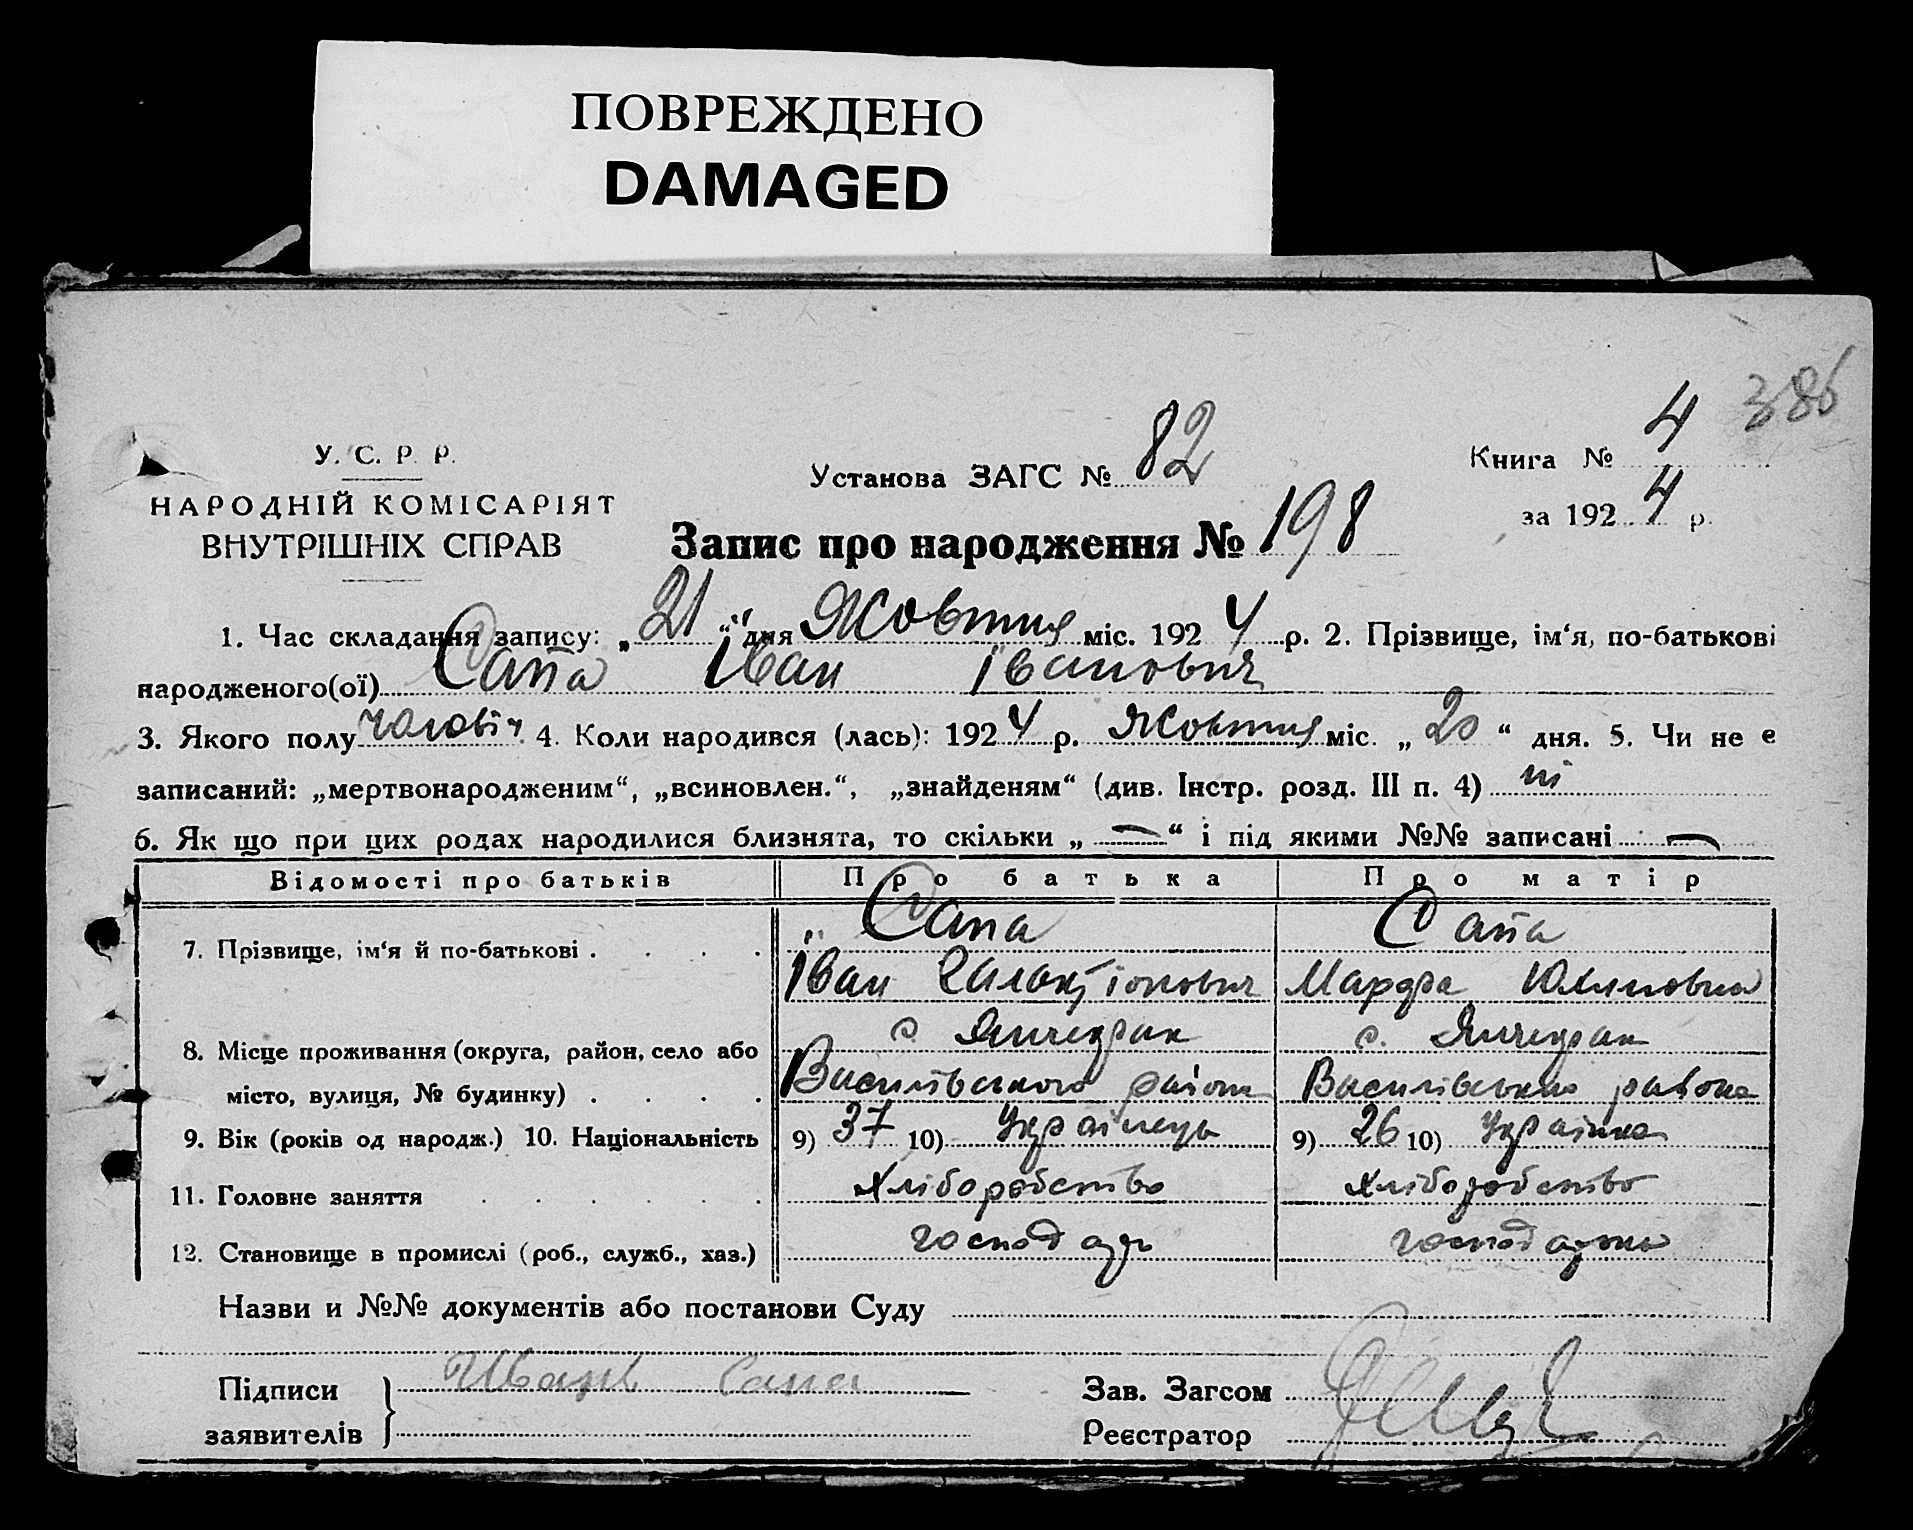 ПОВРЕЖДЕНО
DAMAGED
386
У. С. Р. Р.
НАРОДНІЙ КОМІСАРІЯТ
ВНУТРІШНІХ СПРАВ
Установа ЗАГС № 82
Книга № 4
за 1924 р.
Запис про народження № 198
1. Час складання запису: „21“ дня Жовтня міс. 1924 р. 2. Прізвище, ім‘я, по-батькові
народженого(ої) Сапа Іван Іванович
3. Якого полу чоловіч 4. Коли народився (лась): 1924 р. Жовтня міс. „20“ дня. 5. Чи не є
записаний: „мертвонародженим“, „всиновлен.“, „знайденям“ (див. Інстр. розд. III п. 4) ні
6. Як що при цих родах народилися близнята, то скільки „ — “ і під якими №№ записані —
Відомості про батьків Про батька Про матір
Сапа Сапа
7. Прізвище, ім‘я й по-батькові . . . . Іван Галактіонович Марфа Юхимовна
с. Янчекрак с. Янчекрак
8. Місце проживання (округа, район, село або
місто, вулиця, № будинку) . . . . Василівського району Василівського района
9. Вік (років од народж.) 10. Національність 9) 37 10) Українець 9) 26 10) Українка
11. Головне заняття . . . . . Хліборобство Хліборобство
12. Становище в промислі (роб., служб., хаз.) господарь господарка
Назви и №№ документів або постанови Суду
Підписи Сапа Зав. Загсом
заявителів Реєстратор